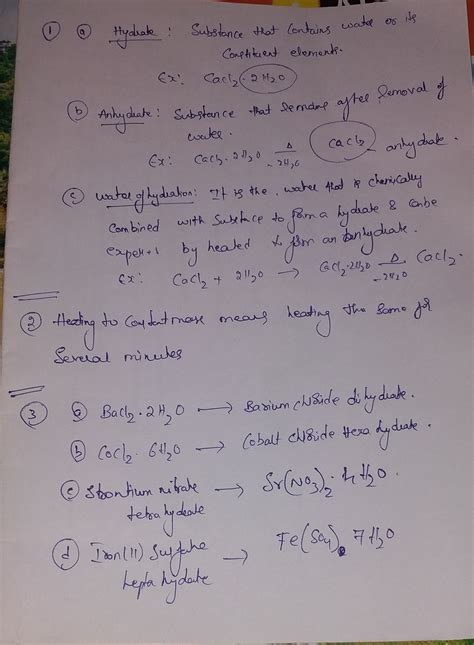 ① ⓐ Hydrate : Substance that contains water or its
constituent elements.
Ex: CaCl2 · 2H2O
ⓑ Anhydrate : Substance that remains after removal of
water.
Ex: CaCl2 · 2H2O Δ -2H2O CaCl2 anhydrate.
ⓒ Water of hydration : It is the water that is chemically
combined with substance to form a hydrate & can be
by heated to form an anhydrate.
Ex: CaCl2 + 2H2O → CaCl2·2H2O Δ -2H2O CaCl2.
② Heating to constant mass means heating the same for
several minutes
③ ⓐ BaCl2 · 2H2O → Barium chloride dihydrate.
ⓑ CoCl2 · 6H2O → Cobalt chloride Hexa hydrate.
ⓒ Strontium nitrate → Sr(NO3)2 · 4H2O.
tetra hydrate
ⓓ Iron(II) Sulfate → Fe(SO4) · 7H2O
hepta hydrate